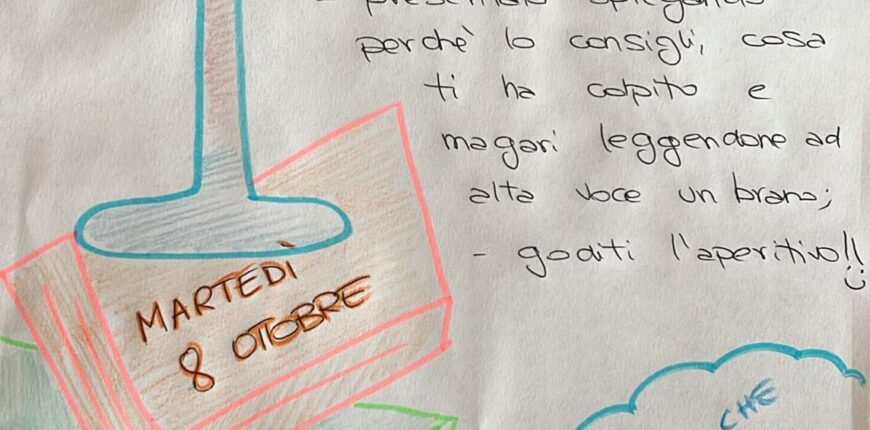 perchè lo consigli, cosa
ti ha colpito e
magari leggendone ad
alta voce un brano;
- goditi l'aperitivo!!
MARTEDÌ
8 OTTOBRE
CHE